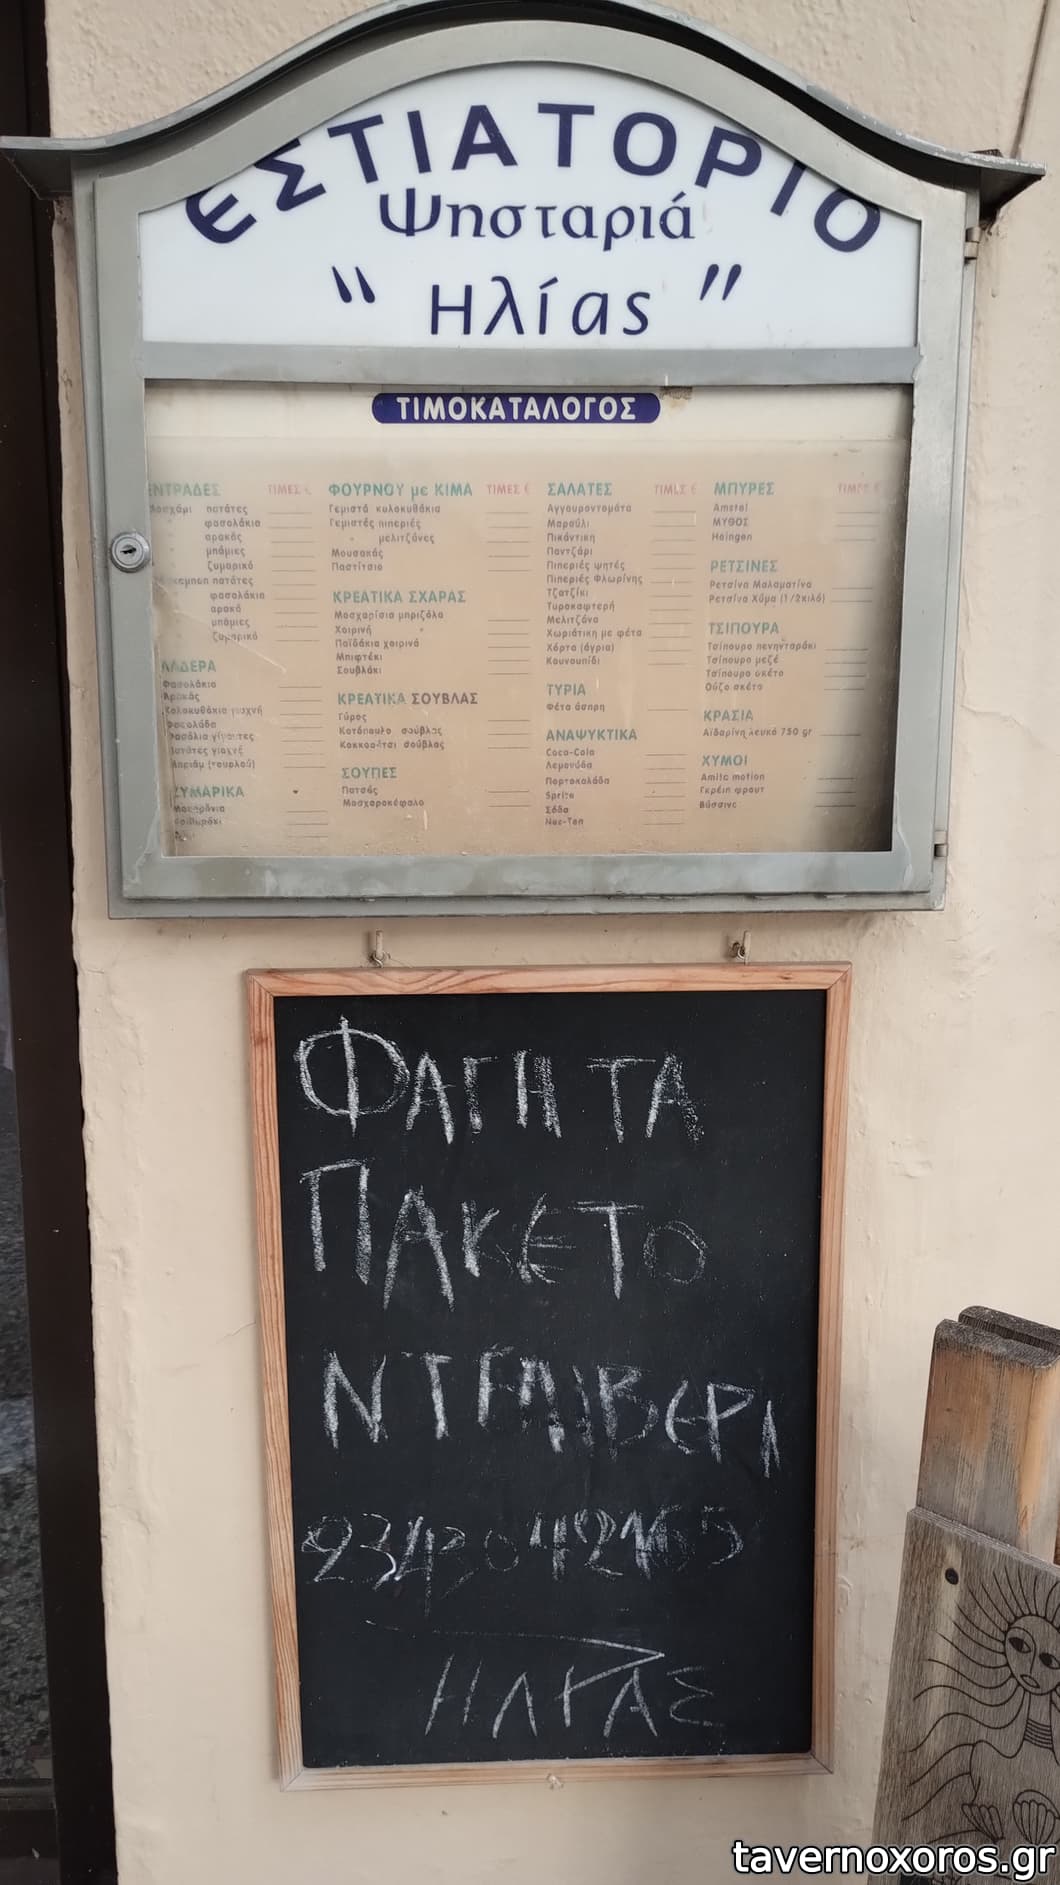 ΕΣΤΙΑΤΟΡΙΟ
Ψησταριά
" Ηλίας "
ΤΙΜΟΚΑΤΑΛΟΓΟΣ
ΕΝΤΡΑΔΕΣ ΤΙΜΕΣ €
Μοσχάρι πατάτες
" φασολάκια
" αρακάς
" μπάμιες
" ζυμαρικό
πατάτες
φασολάκια
αρακά
μπάμιες
ζυμαρικό
ΛΑΔΕΡΑ
Φασολάκια
Αρακάς
Κολοκυθάκια γιαχνή
Φασολάδα
Φασόλια γίγαντες
Πατάτες γιαχνί
Μπριάμ (τουρλού)
ΖΥΜΑΡΙΚΑ
Μακαρόνια
Κριθαράκι
ΦΟΥΡΝΟΥ με ΚΙΜΑ ΤΙΜΕΣ €
Γεμιστά κολοκυθάκια
Γεμιστές πιπεριές
" μελιτζάνες
Μουσακάς
Παστίτσιο
ΚΡΕΑΤΙΚΑ ΣΧΑΡΑΣ
Μοσχαρίσια μπριζόλα
Χοιρινή "
Παϊδάκια χοιρινά
Μπιφτέκι
Σουβλάκι
ΚΡΕΑΤΙΚΑ ΣΟΥΒΛΑΣ
Γύρος
Κοτόπουλο σούβλας
Κοκορέτσι σούβλας
ΣΟΥΠΕΣ
Πατσάς
Μοσχαροκέφαλο
ΣΑΛΑΤΕΣ ΤΙΜΕΣ €
Αγγουροντομάτα
Μαρούλι
Πικάντικη
Παντζάρι
Πιπεριές ψητές
Πιπεριές Φλωρίνης
Τζατζίκι
Τυροκαφτερή
Μελιτζάνα
Χωριάτικη με φέτα
Χόρτα (άγρια)
Κουνουπίδι
ΤΥΡΙΑ
Φέτα άσπρη
ΑΝΑΨΥΚΤΙΚΑ
Coca-Cola
Λεμονάδα
Πορτοκαλάδα
Sprite
Σόδα
Nes-Tea
ΜΠΥΡΕΣ ΤΙΜΕΣ €
Amstel
ΜΥΘΟΣ
Heingen
ΡΕΤΣΙΝΕΣ
Ρετσίνα Μαλαματίνα
Ρετσίνα Χύμα (1/2κιλό)
ΤΣΙΠΟΥΡΑ
Τσίπουρο πενηνταράκι
Τσίπουρο μεζέ
Τσίπουρο σκέτο
Ούζο σκέτο
ΚΡΑΣΙΑ
Αϊδαρίνη λευκό 750 gr
ΧΥΜΟΙ
Amita motion
Γκρέιπ φρουτ
Βύσσινο
ΦΑΓΗΤΑ
ΠΑΚΕΤΟ
ΝΤΕΛΙΒΕΡΙ
2343042165
ΗΛΙΑΣ
tavernoxoros.gr